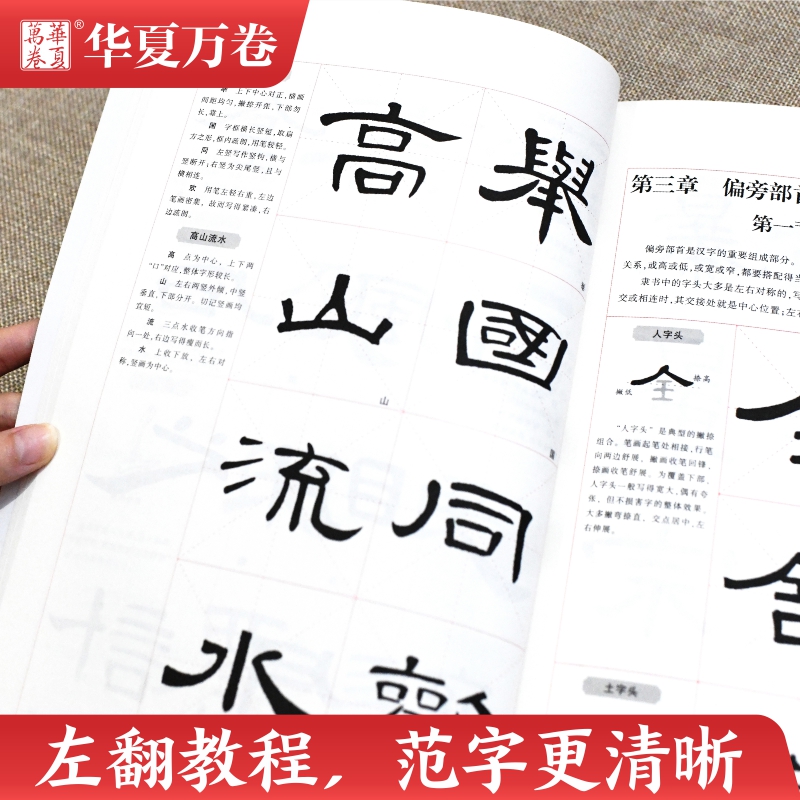 華夏
萬卷
®
华夏万卷
上下中心对正，横画
间距均匀，撇捺开张，下部勿
长，靠上。
国 字框横长竖短，取扁
方之形，框内疏朗，用笔较轻。
同 左竖写作竖钩，横与
竖断开；右竖为尖尾竖，且与
横相连。
欢 用笔左轻右重，左边
笔画密集，故而写得紧凑，右
边疏朗。
高山流水
高 点为中心，上下两
“口”对应，整体字形较长。
山 左右两竖外倾，中竖
垂直，下部分开。切记竖画均
宜短。
流 三点水收笔方向指
向一处，右边写得瘦而长。
水 上收下放，左右对
称，竖画为中心。
高
山
流
水
山
舉
國
同
國
第三章 偏旁部首
第一节
偏旁部首是汉字的重要组成部分。
关系，或高或低，或宽或窄，都要搭配得当
隶书中的字头大多是左右对称的，写
交或相连时，其交接处就是中心位置；左右
人字头
全
捺高
撇低
“人字头”是典型的撇捺
组合。笔画起笔处相接，行笔
向两边舒展，撇画收笔回锋，
捺画收笔舒展。为覆盖下部，
人字头一般写得宽大，偶有夸
张，但不损害字的整体效果。
大多撇弯捺直，交点居中，左
右伸展。
土字头
左翻教程，范字更清晰